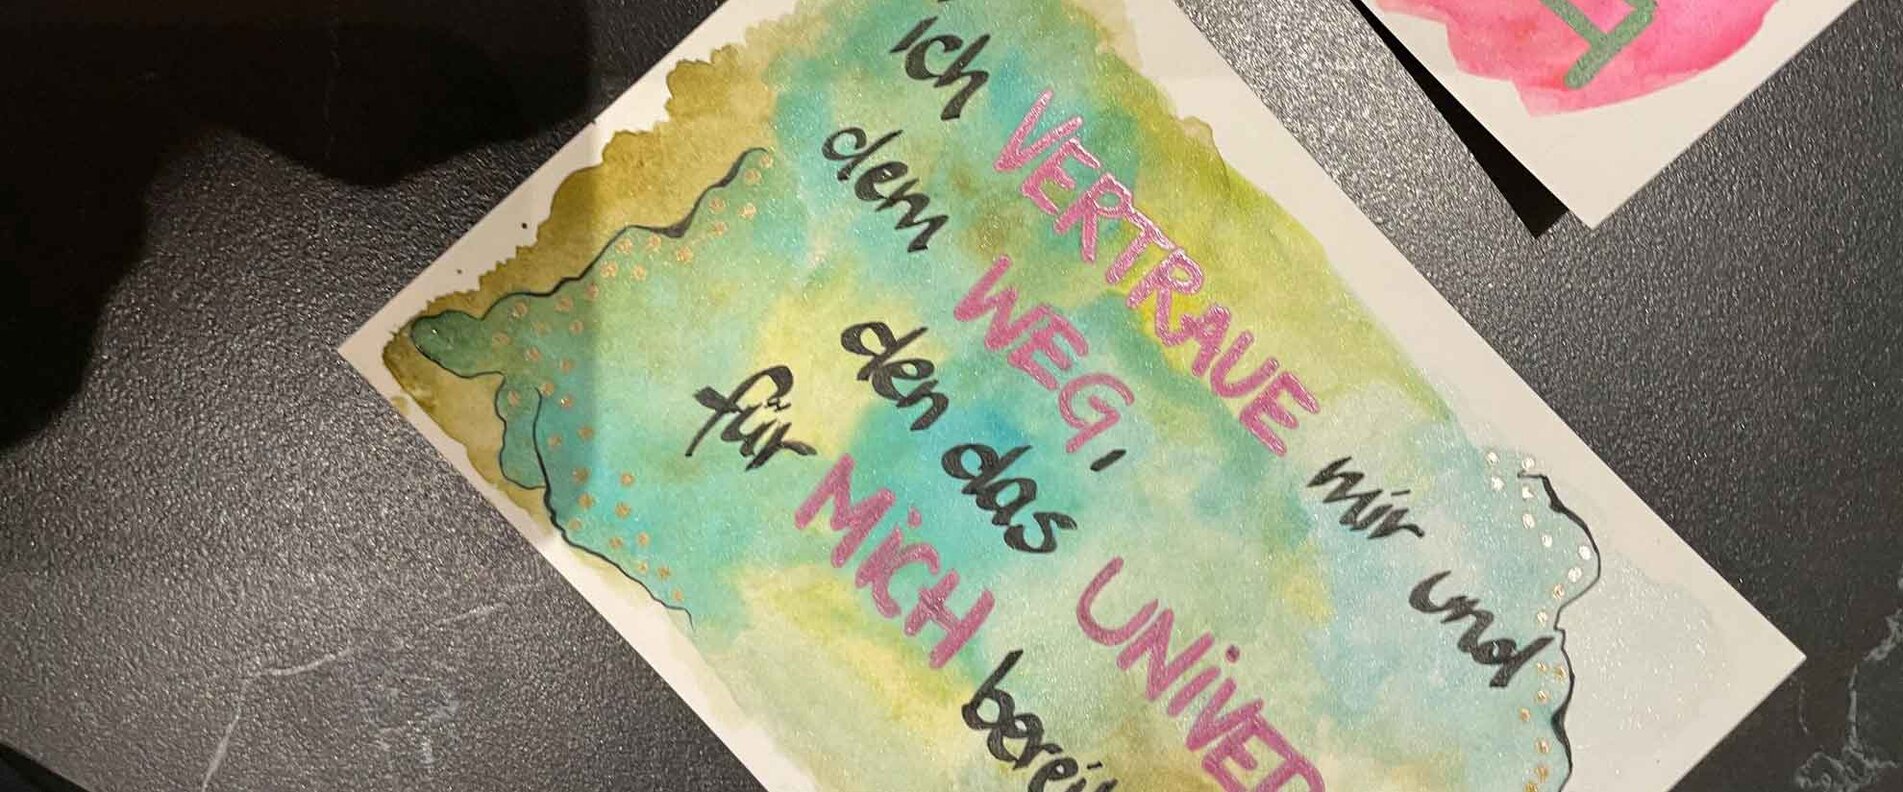 ich VERTRAUE mir und
dem WEG,
den das UNIVER
für MiCH berei